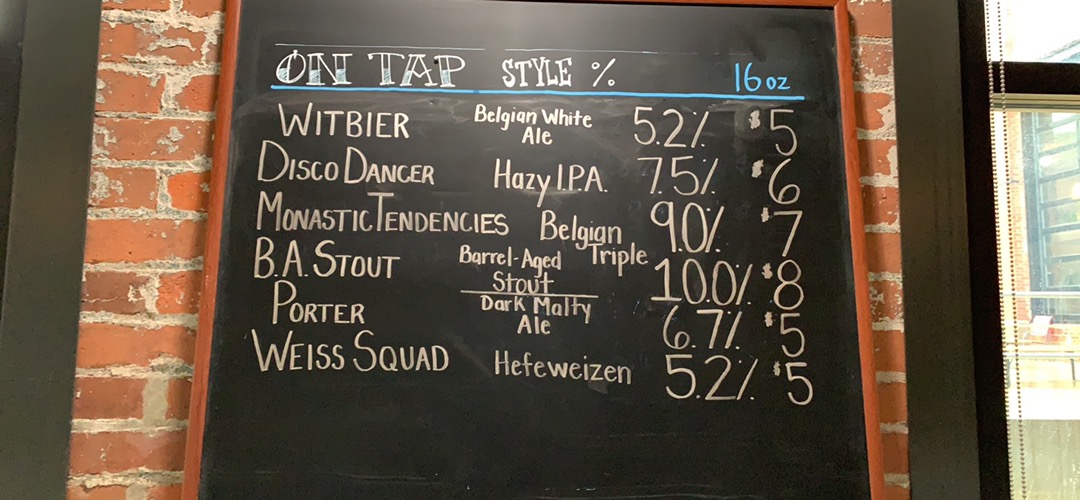 ON TAP STYLE % 16 oz
WITBIER Belgian White Ale 5.2% $5
DISCO DANCER Hazy I.P.A. 7.5% $6
MONASTIC TENDENCIES Belgian Triple 9.0% $7
B.A. STOUT Barrel-Aged Stout 10.0% $8
PORTER Dark Malty Ale 6.7% $5
WEISS SQUAD Hefeweizen 5.2% $5